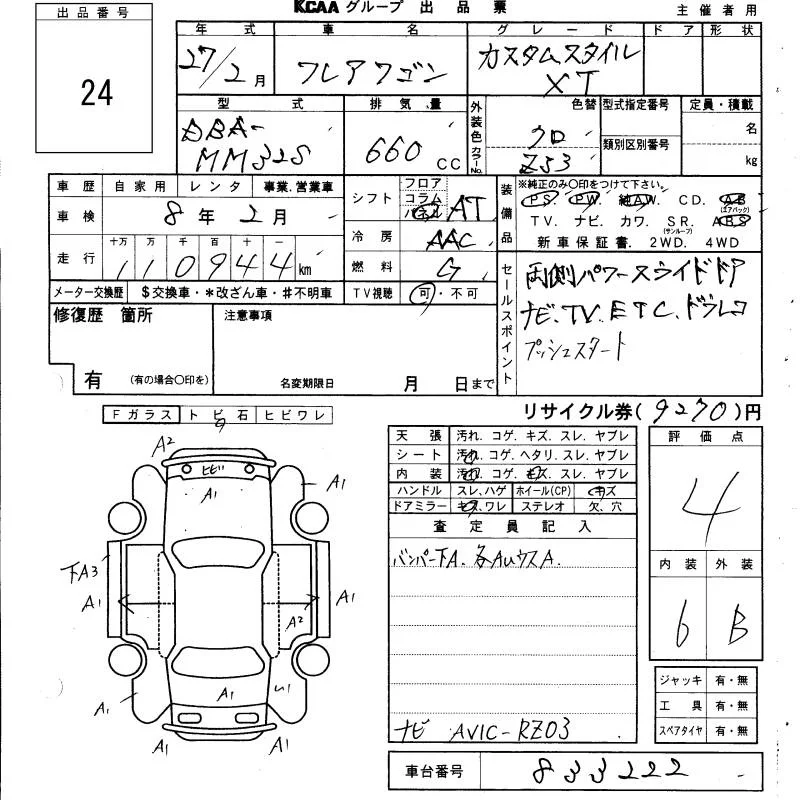 KCAA グループ 出品票
主催者用
出品番号
24
年式 車名 グレード ドア 形状
27/2月 フレアワゴン カスタムスタイル XT
型式 排気量 外装色 カラーNo. 色替 型式指定番号 定員・積載
DBA-MM32S 660CC クロ Z53 類別区別番号 名 kg
車歴 自家用 レンタ 事業.営業車
車検 8年2月
走行 十万 万 千 百 十 一
110944km
メーター交換歴 $交換車・*改ざん車・#不明車
シフト フロア コラム パネル AT
冷房 AAC
燃料 G
TV視聴 可・不可
装備品 ※純正のみ〇印をつけて下さい。
PS. PW. 純AW. CD. AB(エアバック)
TV. ナビ. カワ. SR.(サンルーフ) ABS
新車保証書. 2WD. 4WD
セールスポイント
両側パワースライドドア
ナビ.TV.ETC.ドラレコ
プッシュスタート
修復歴 箇所 注意事項
有 (有の場合〇印を) 名変期限日 月 日まで
リサイクル券(9270)円
Fガラス トビ石 ヒビワレ
A2
ヒビ
A1
A1
A1
下A3
A1
A1
A2
A1
A1
A1
A1
天張 汚れ. コゲ. キズ. スレ. ヤブレ
シート 汚れ. コゲ. ヘタリ. スレ. ヤブレ
内装 汚れ. コゲ. キズ. スレ. ヤブレ
ハンドル スレ.ハゲ ホイール(CP) キズ
ドアミラー キズ.ワレ ステレオ 欠.穴
査定員記入
バンパー下A. 各AUウスA.
ナビ AVIC-RZ03
評価点
4
内装 外装
6 B
ジャッキ 有・無
工具 有・無
スペアタイヤ 有・無
車台番号 833222